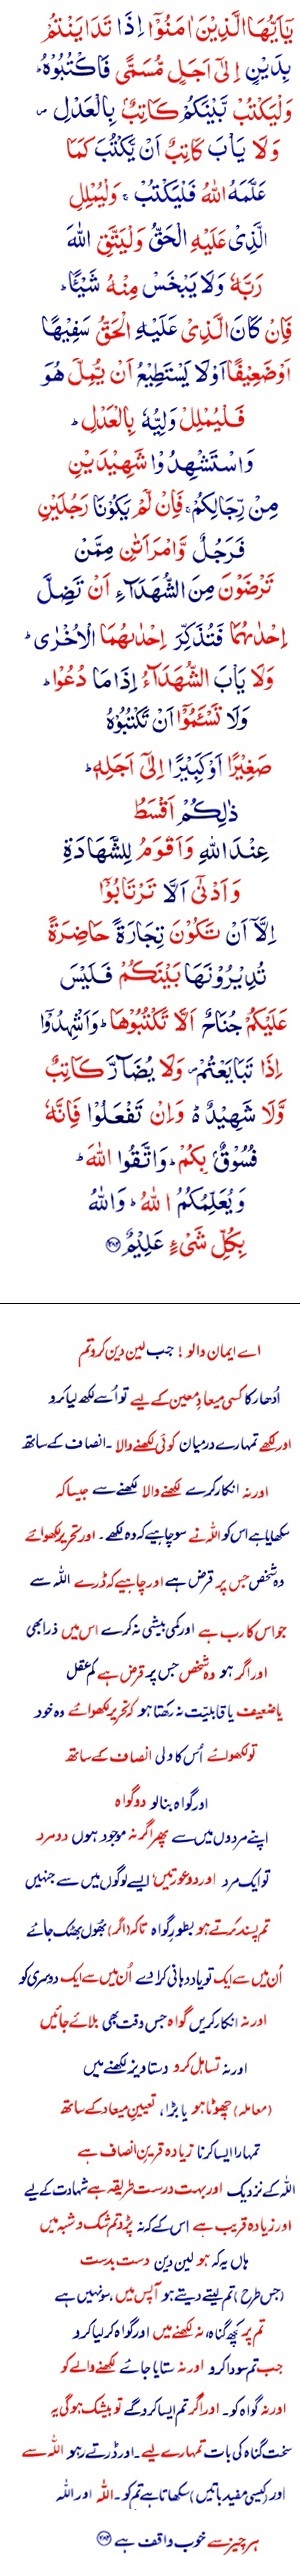 يٰٓاَيُّهَا الَّذِيْنَ اٰمَنُوْٓا اِذَا تَدَايَنْتُمْ
بِدَيْنٍ اِلٰٓى اَجَلٍ مُّسَمًّى فَاكْتُبُوْهُ ؕ
وَلْيَكْتُبْ بَّيْنَكُمْ كَاتِبٌۢ بِالْعَدْلِ ۪
وَلَا يَاْبَ كَاتِبٌ اَنْ يَّكْتُبَ كَمَا
عَلَّمَهُ اللّٰهُ فَلْيَكْتُبْ ۚ وَلْيُمْلِلِ
الَّذِيْ عَلَيْهِ الْحَقُّ وَلْيَتَّقِ اللّٰهَ
رَبَّهٗ وَلَا يَبْخَسْ مِنْهُ شَيْـًٔا ؕ
فَاِنْ كَانَ الَّذِيْ عَلَيْهِ الْحَقُّ سَفِيْهًا
اَوْ ضَعِيْفًا اَوْ لَا يَسْتَطِيْعُ اَنْ يُّمِلَّ هُوَ
فَلْيُمْلِلْ وَلِيُّهٗ بِالْعَدْلِ ؕ
وَاسْتَشْهِدُوْا شَهِيْدَيْنِ
مِنْ رِّجَالِكُمْ ۚ فَاِنْ لَّمْ يَكُوْنَا رَجُلَيْنِ
فَرَجُلٌ وَّامْرَاَتٰنِ مِمَّنْ
تَرْضَوْنَ مِنَ الشُّهَدَآءِ اَنْ تَضِلَّ
اِحْدٰىهُمَا فَتُذَكِّرَ اِحْدٰىهُمَا الْاُخْرٰى ؕ
وَلَا يَاْبَ الشُّهَدَآءُ اِذَا مَا دُعُوْا ؕ
وَلَا تَسْـَٔمُوْٓا اَنْ تَكْتُبُوْهُ
صَغِيْرًا اَوْ كَبِيْرًا اِلٰٓى اَجَلِهٖ ؕ
ذٰلِكُمْ اَقْسَطُ
عِنْدَ اللّٰهِ وَاَقْوَمُ لِلشَّهَادَةِ
وَاَدْنٰٓى اَلَّا تَرْتَابُوْٓا
اِلَّآ اَنْ تَكُوْنَ تِجَارَةً حَاضِرَةً
تُدِيْرُوْنَهَا بَيْنَكُمْ فَلَيْسَ
عَلَيْكُمْ جُنَاحٌ اَلَّا تَكْتُبُوْهَا ؕ وَاَشْهِدُوْٓا
اِذَا تَبَايَعْتُمْ ۪ وَلَا يُضَآرَّ كَاتِبٌ
وَّلَا شَهِيْدٌ ؕ۬ وَاِنْ تَفْعَلُوْا فَاِنَّهٗ
فُسُوْقٌۢ بِكُمْ ؕ وَاتَّقُوا اللّٰهَ ؕ
وَيُعَلِّمُكُمُ اللّٰهُ ؕ وَاللّٰهُ
بِكُلِّ شَيْءٍ عَلِيْمٌ ﴿۲۸۲﴾
اے ایمان والو! جب لین دین کرو تم
اُدھار کا کسی میعادِ معین کے لیے تو اُسے لکھ لیا کرو
اور لکھے تمہارے درمیان کوئی لکھنے والا۔ انصاف کے ساتھ
اور نہ انکار کرے لکھنے والا لکھنے سے جیسا کہ
سکھایا ہے اس کو اللہ نے سو چاہیے کہ وہ لکھے۔ اور تحریر لکھوائے
وہ شخص جس پر قرض ہے اور چاہیے کہ ڈرے اللہ سے
جو اس کا رب ہے اور کمی بیشی نہ کرے اس میں ذرا بھی
اور اگر ہو وہ شخص جس پر قرض ہے کم عقل
یا ضعیف یا قابلیّت نہ رکھتا ہو کہ تحریر لکھوائے وہ خود
تو لکھوائے اُس کا ولی انصاف کے ساتھ
اور گواہ بنالو دو گواہ
اپنے مردوں میں سے پھر اگر نہ موجود ہوں دو مرد
تو ایک مرد اور دو عورتیں ایسے لوگوں میں سے جنہیں
تم پسند کرتے ہو بطورِ گواہ تاکہ (اگر) بھُول بھٹک جائے
اُن میں سے ایک تو یاد دہانی کرا دے اُن میں سے ایک دوسری کو
اور نہ انکار کریں گواہ جس وقت بھی بلائے جائیں
اور نہ تساہل کرو دستاویز لکھنے میں
(معاملہ) چھوٹا ہو یا بڑا، تعیینِ میعاد کے ساتھ
تمہارا ایسا کرنا زیادہ قرینِ انصاف ہے
اللہ کے نزدیک اور بہت درست طریقہ ہے شہادت کے لیے
اور زیادہ قریب ہے اس کے کہ نہ پڑو تم شک و شبہ میں
ہاں یہ کہ ہو لین دین دست بدست
(جس طرح) تم لیتے دیتے ہو آپس میں، سو نہیں ہے
تم پر کچھ گناہ، نہ لکھنے میں اور گواہ کر لیا کرو
جب تم سودا کرو اور نہ ستایا جائے لکھنے والے کو
اور نہ گواہ کو۔ اور اگر تم ایسا کرو گے تو بیشک ہوگی یہ
سخت گناہ کی بات تمہارے لیے۔ اور ڈرتے رہو اللہ سے
اور (کیسی مفید باتیں) سکھاتا ہے تم کو۔ اللہ اور اللہ
ہر چیز سے خوب واقف ہے ﴿۲۸۲﴾